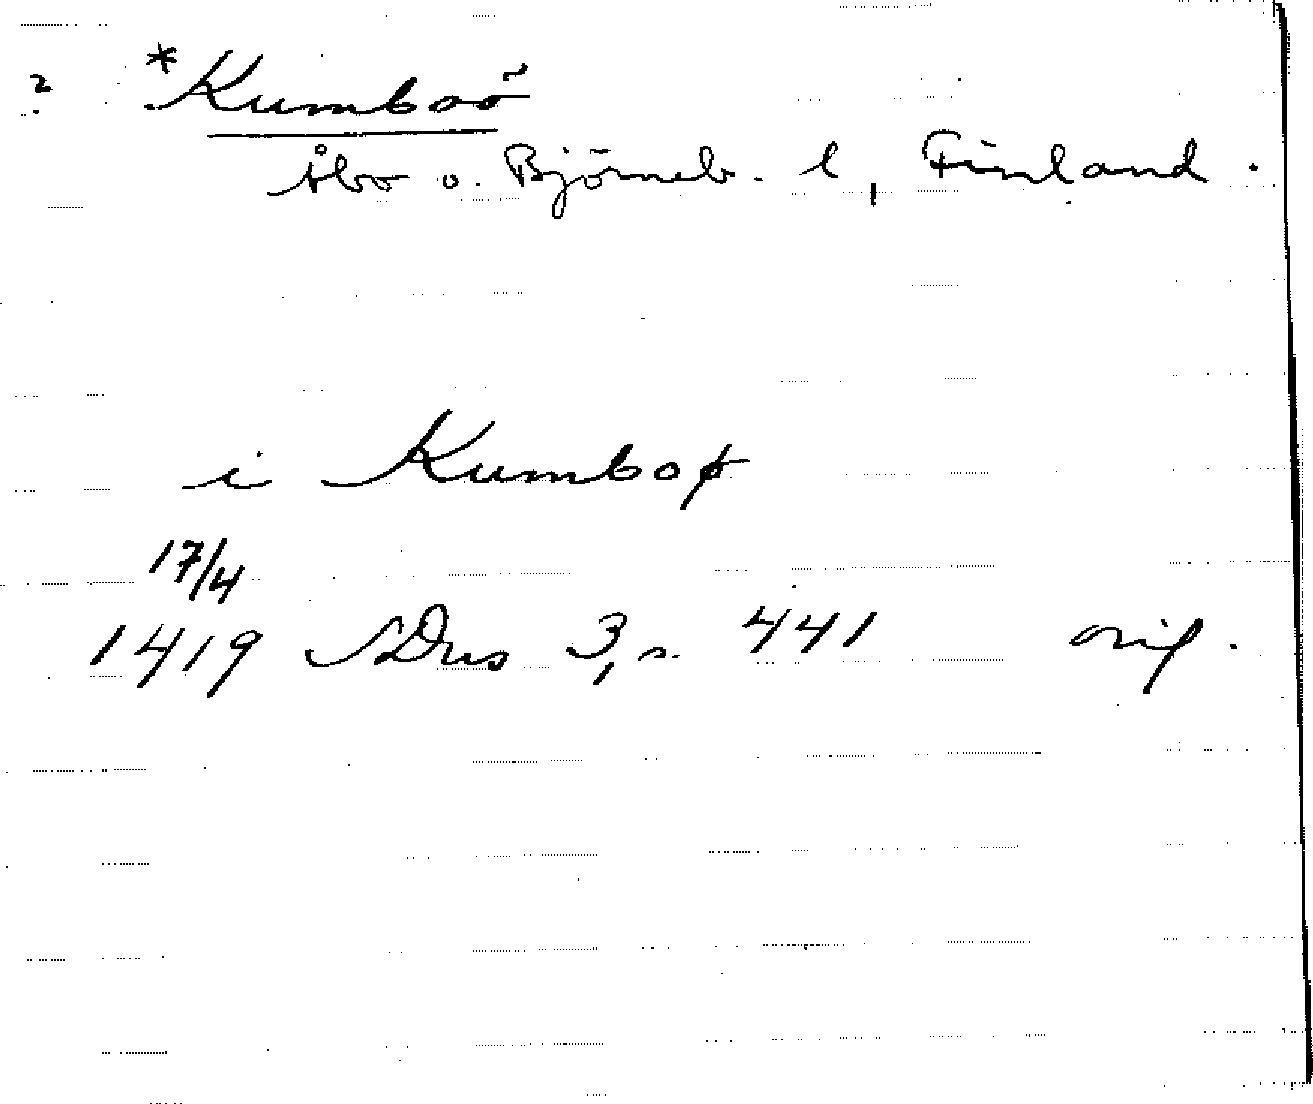 ? *Kumboö
Åbo o. Björneb. l, Finland.
i Kumboø
17/4
1419 SDns 3, s. 441 orig.